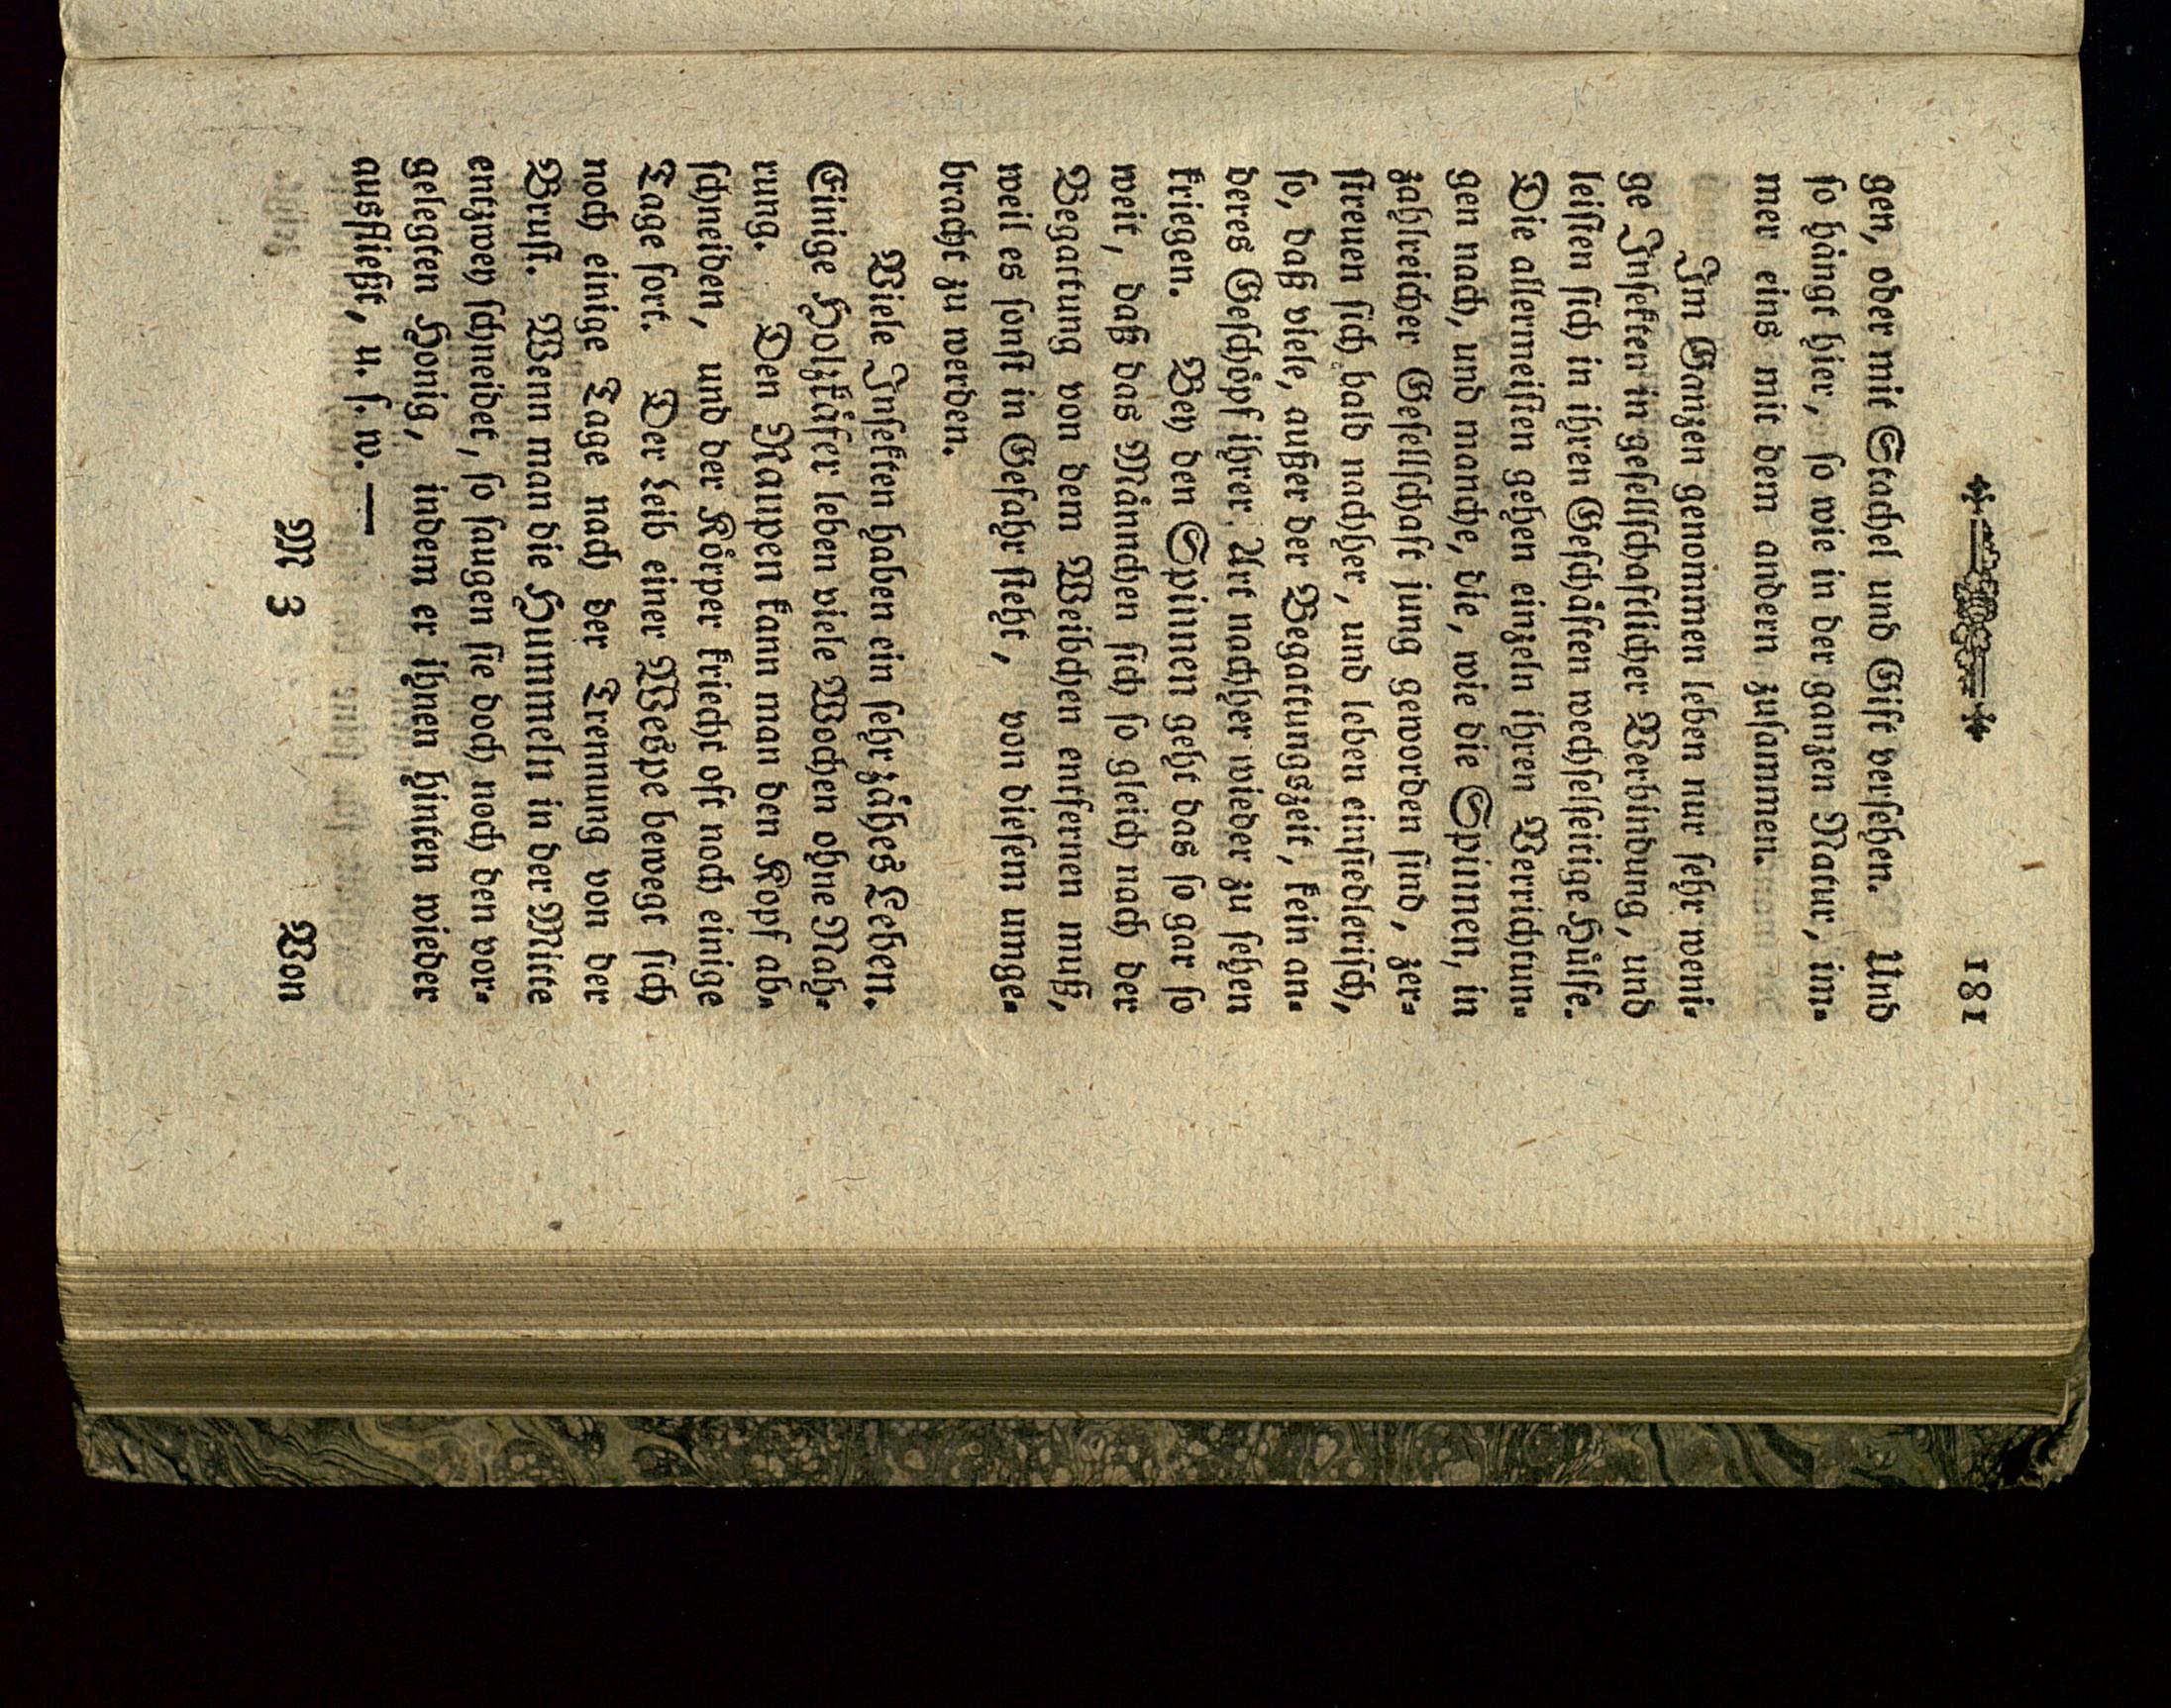 181
gen, oder mit Stachel und Gift versehen. Und
so hängt hier, so wie in der ganzen Natur, im-
mer eins mit dem andern zusammen.
Im Ganzen genommen leben nur sehr weni-
ge Insekten in gesellschaftlicher Verbindung, und
leisten sich in ihren Geschäften wechselseitige Hülfe.
Die allermeisten gehen einzeln ihren Verrichtun-
gen nach, und manche, die, wie die Spinnen, in
zahlreicher Gesellschaft jung geworden sind, zer-
streuen sich bald nachher, und leben einsiedlerisch,
so, daß viele, außer der Begattungszeit, kein an-
deres Geschöpf ihrer Art nachher wieder zu sehen
kriegen. Bey den Spinnen geht das so gar so
weit, daß das Männchen sich so gleich nach der
Begattung von dem Weibchen entfernen muß,
weil es sonst in Gefahr steht, von diesem umge-
bracht zu werden.
Viele Insekten haben ein sehr zähes Leben.
Einige Holzkäfer leben viele Wochen ohne Nah-
rung. Den Raupen kann man den Kopf ab-
schneiden, und der Körper kriecht oft noch einige
Tage fort. Der Leib einer Weßpe bewegt sich
noch einige Tage nach der Trennung von der
Brust. Wenn man die Hummeln in der Mitte
entzwey schneidet, so saugen sie doch noch den vor-
gelegten Honig, indem er ihnen hinten wieder
ausfließt, u. s. w. —
M 3
Von